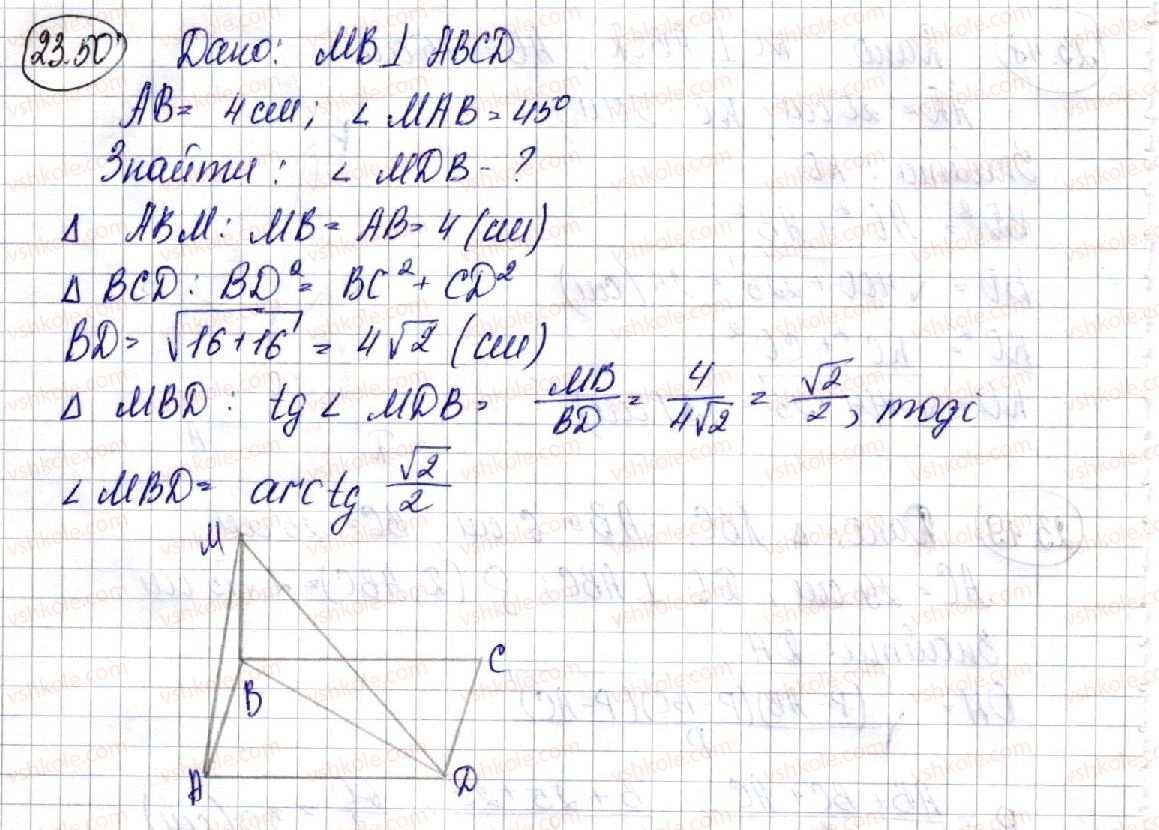 23.50 Дано: MB⊥ABCD
AB = 4 см; ∠MAB = 45°
Знайти: ∠MDB - ?
Δ ABM: MB = AB = 4 (см)
Δ BCD: BD² = BC² + CD²
BD = √(16+16) = 4√2 (см)
Δ MBD: tg∠MDB = MB/BD = 4/4√2 = √2/2, тоді
∠MBD = arctg √2/2
M
B
C
A
D